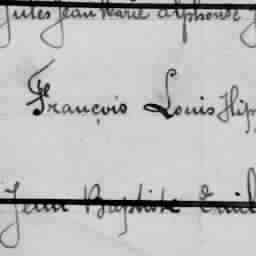 Jules Jean Marie Alphonse
François Louis Hip
Jean Baptiste Emil